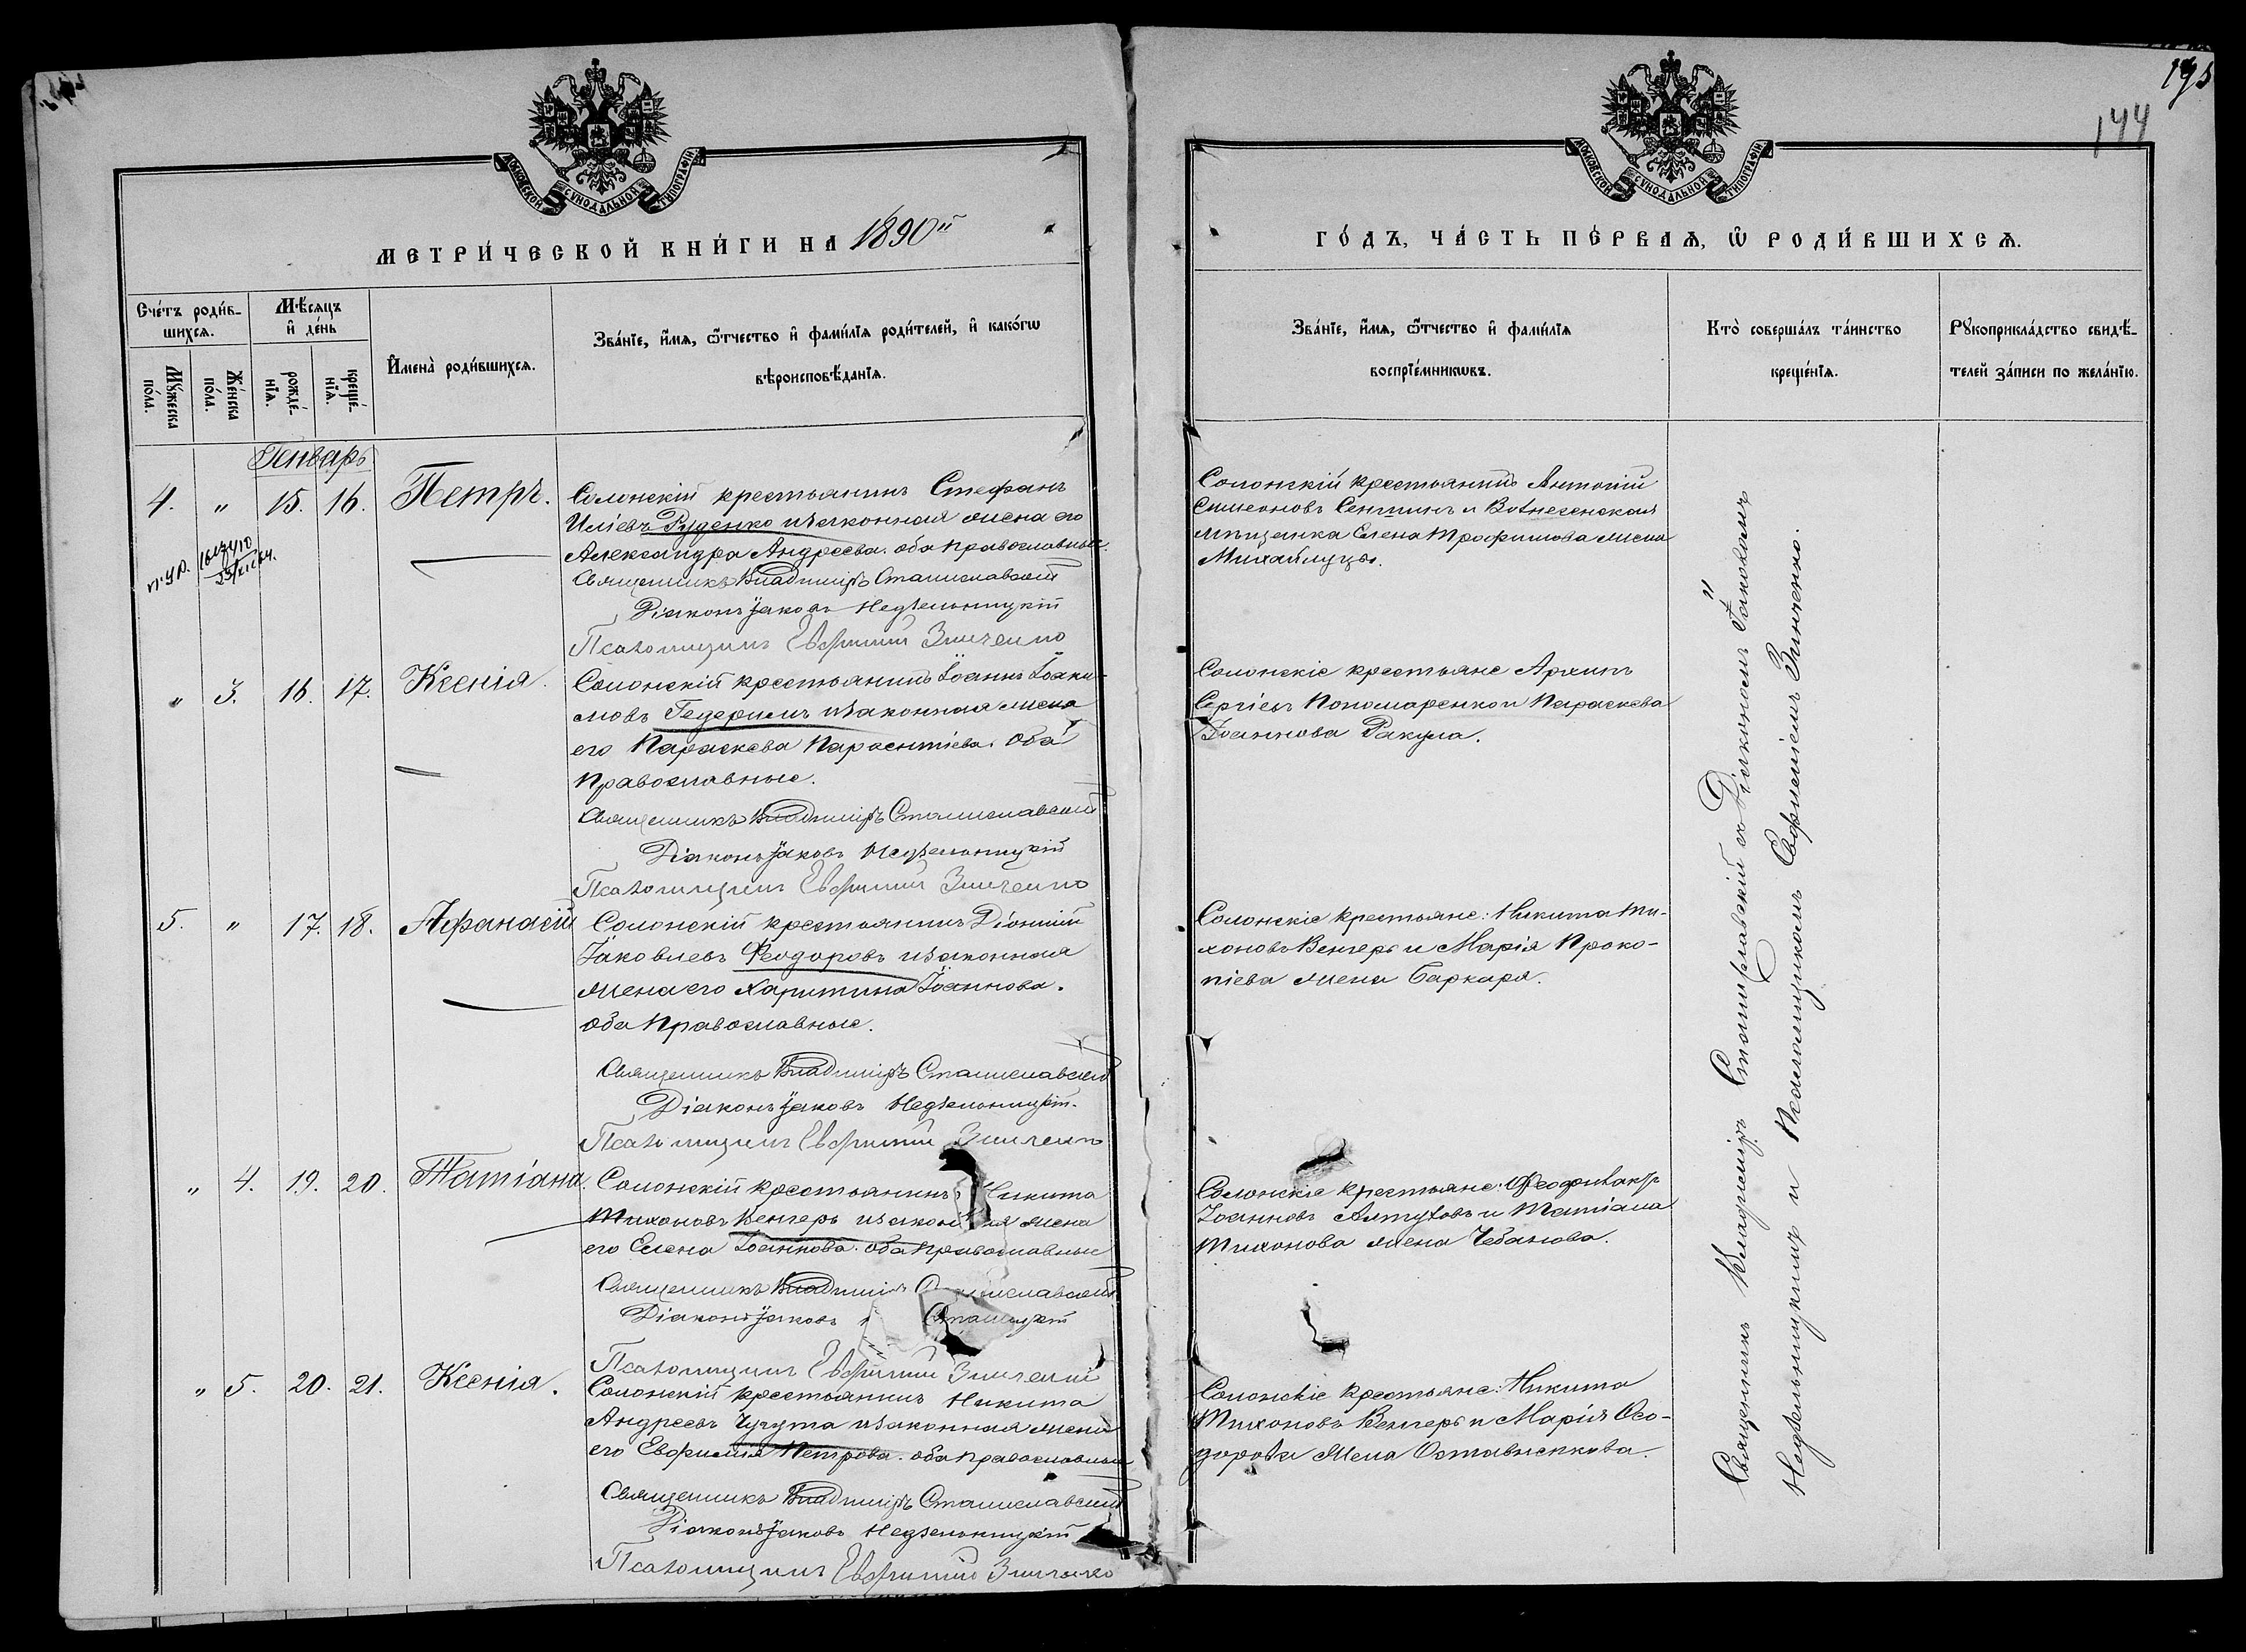 195
144
МОСКОВСКОЙ СѴНОДАЛЬНОЙ ТИПОГРАФІИ
МЕТРИ́ЧЕСКОЙ КНИ́ГИ НА 1890й
Сче́тъ роди́в-
шихсѧ.
Мꙋ́жеска
по́ла.
Же́нска
по́ла.
Мѣ́сѧцъ
и҆ де́нь
рожде́-
нїѧ.
креще́-
нїѧ.
И҆мена̀ роди́вшихсѧ.
Зва́нїе, и҆́мѧ, ѻ҆́тчество и҆ фами́лїѧ роди́телей, и҆ како́гѡ
вѣроисповѣ́данїѧ.
Генварь
4. " 15. 16. Петръ.
Солонскій крестьянинъ Стефанъ
Иліевъ Руденко и законная жена его
Александра Андреева. оба православные.
Священникъ Владиміръ Станиславскій
Діаконъ Іаковъ Недѣльницкій
Псаломщикъ Евфимій Зинченко
" 3. 16. 17. Ксенія.
Солонскій крестьянинъ Іоаннъ Іоаки-
мовъ Гедеримъ и законная жена
его Параскева Парѳентіева. Оба
православные.
Священникъ Владиміръ Станиславскій
Діаконъ Іаковъ Недѣльницкій
Псаломщикъ Евфимій Зинченко
5. " 17. 18. Афанасій
Солонскій крестьянинъ Діонисій
Іаковлевъ Феодоровъ и законная
жена его Харитина Іоаннова.
оба православные.
Священникъ Владиміръ Станиславскій
Діаконъ Іаковъ Недѣльницкій.
Псаломщикъ Евфимій Зинченко
" 4. 19. 20. Татіана.
Солонскій крестьянинъ Никита
Тихоновъ Венгеръ и законная жена
его Елена Іоаннова. оба православные
Священникъ Владиміръ Станиславскій
Діаконъ Іаковъ
Псаломщикъ Евфимій Зинченко
" 5. 20. 21. Ксенія.
Солонскій крестьянинъ Никита
Андреевъ Чугута и законная жена
его Евфимія Петрова. оба православные
Священникъ Владиміръ Станиславскій
Діаконъ Іаковъ Недѣльницкій
Псаломщикъ Евфимій Зинченко
МОСКОВСКОЙ СѴНОДАЛЬНОЙ ТИПОГРАФІИ
ГО́ДЪ, ЧА́СТЬ ПЕ́РВАѦ, Ѡ҆ РОДИ́ВШИХСѦ.
Зва́нїе, и҆́мѧ, ѻ҆́тчество и҆ фами́лїѧ
воспрїе́мникѡвъ.
Кто̀ соверша́лъ та́инство
креще́нїѧ.
Рꙋкоприкла́дство свидѣ́-
телей за́писи по жела́нїю.
Солонскій крестьянинъ Антоній
Симеоновъ Сенишинъ и Вознесенская
мѣщанка Елена Трофимова жена
Михайлуцы.
Солонскіе крестьяне Архипъ
Сергіевъ Пономаренко и Параскева
Іоаннова Ракула.
Солонскіе крестьяне: Никита Ти-
хоновъ Венгеръ и Марія Проко-
піева жена Баркаря.
Солонскіе крестьяне: Феофилактъ
Іоанновъ Алтуховъ и Татіана
Тихонова жена Чебанова.
Солонскіе крестьяне: Никита
Тихоновъ Венгеръ и Марія Ѳео-
дорова жена
Священникъ Владиміръ Станиславскій съ Діакономъ Іаковомъ
Недѣльницкимъ и Псаломщикомъ Евфиміемъ Зинченко.